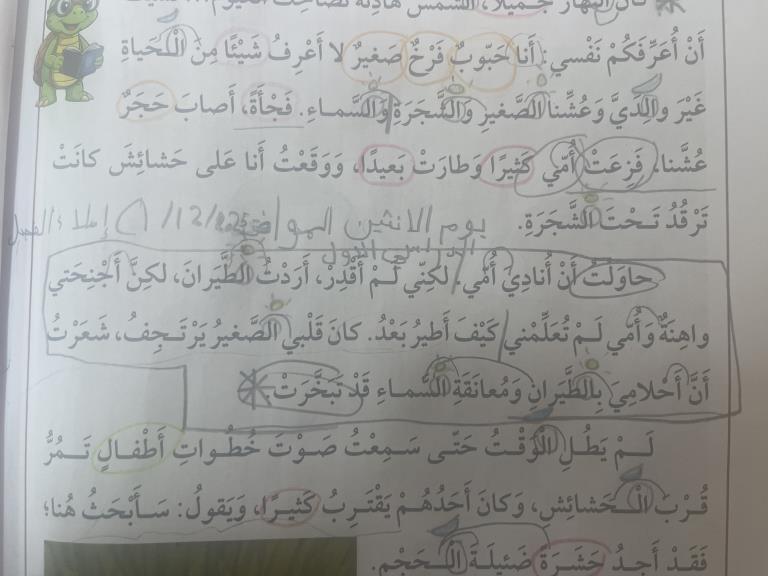 كانَ النَّهارُ جَميلًا، الشَّمْسُ هادِئَةٌ
أَنْ أُعَرِّفَكُمْ نَفْسي: أَنا حَبّوبٌ فَرْخٌ صَغيرٌ لا أَعْرِفُ شَيْئًا مِنَ الْحَياةِ
غَيْرَ والِدَيَّ وَعُشِّنا الصَّغيرِ وَالشَّجَرَةِ وَالسَّماءِ. فَجْأَةً، أَصابَ حَجَرٌ
عُشَّنا. فَزِعَتْ أُمّي كَثيرًا وَطارَتْ بَعيدًا، وَوَقَعْتُ أَنا عَلى حَشائِشَ كانَتْ
تَرْقُدُ تَـحْتَ الشَّجَرَةِ.
يوم الاثنين الموافق 1/12/2025 إملاء الفصل
الدراسي الأول
حاوَلْتُ أَنْ أُنادِيَ أُمّي. لكِنّي لَـمْ أَقْدِرْ، أَرَدْتُ الطَّيَرانَ، لكِنَّ أَجْنِحَتي
واهِنَةٌ وَأُمّي لَـمْ تُعَلِّمْني كَيْفَ أَطيرُ بَعْدُ. كانَ قَلْبي الصَّغيرُ يَرْتَـجِفُ، شَعَرْتُ
أَنَّ أَحْلامِيَ بِالطَّيَرانِ وَمُعانَقَةِ السَّماءِ قَدْ تَبَخَّرَتْ.
لَـمْ يَطُلِ الْوَقْتُ حَتّـى سَـمِعْتُ صَـوْتَ خُطُـواتِ أَطْفـالٍ تَـمُرُّ
قُـرْبَ الْـحَشائِشِ، وَكانَ أَحَدُهُـمْ يَقْتَـرِبُ كَثيـرًا، وَيَقولُ: سَـأَبْحَثُ هُنا؛
فَقَـدْ أَجِـدُ حَشَـرَةً ضَئيلَـةَ الْـحَجْمِ.